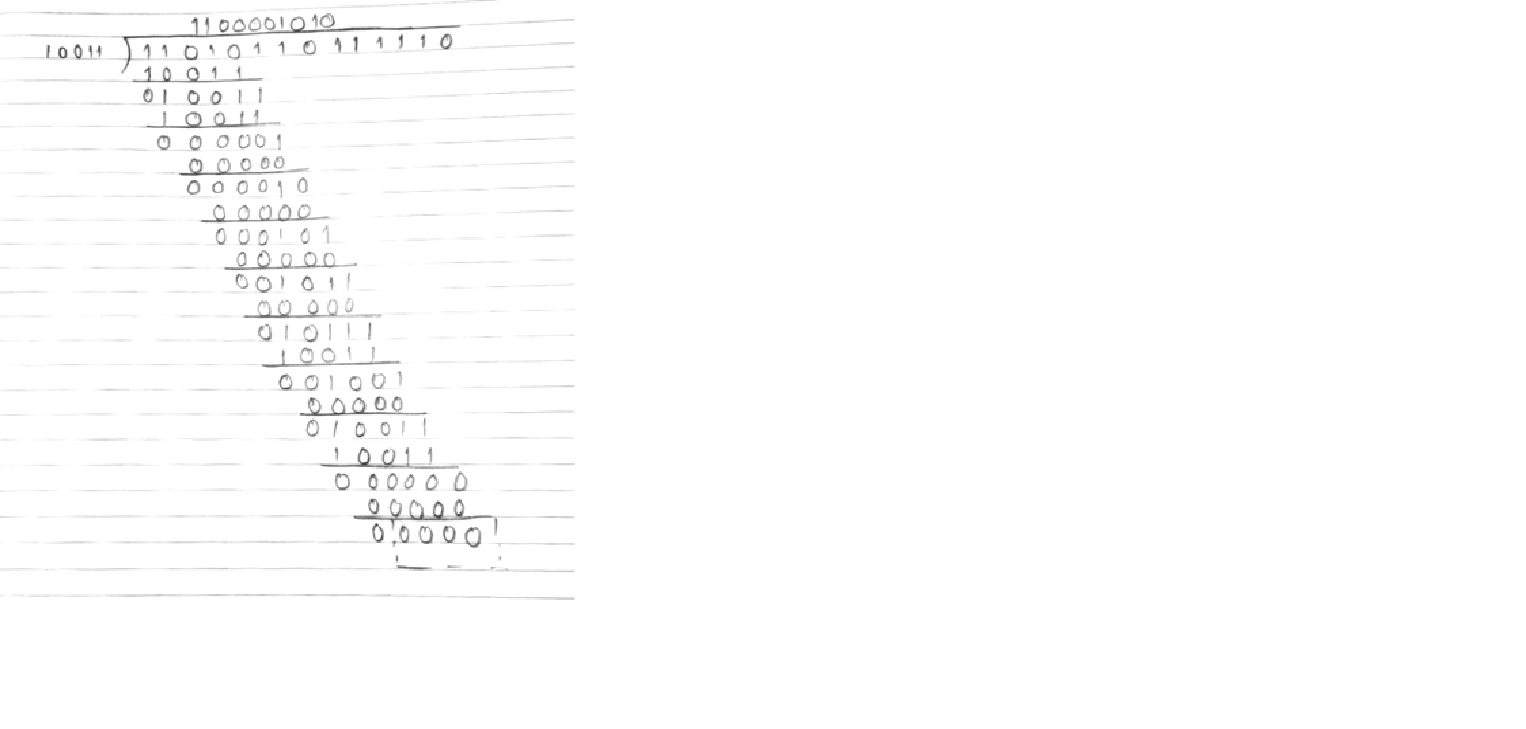 1100001010
10011 ) 11010110111110
10011
010011
10011
000001
00000
000010
00000
000101
00000
001011
00000
010111
10011
001001
00000
010011
10011
000000
00000
00000